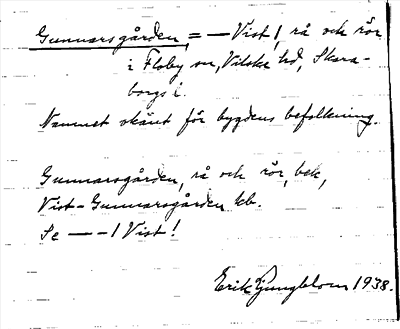 Gunnarsgården, = — Vist!, rå och rör
i Floby sn, Vilske hd, Skara-
borgs l.
Namnet okänt för bygdens befolkning.
Gunnarsgården, rå och rör, bek,
Vist-Gunnarsgården kb.
Se — — 1 Vist!
Erik Ljungblom 1938.